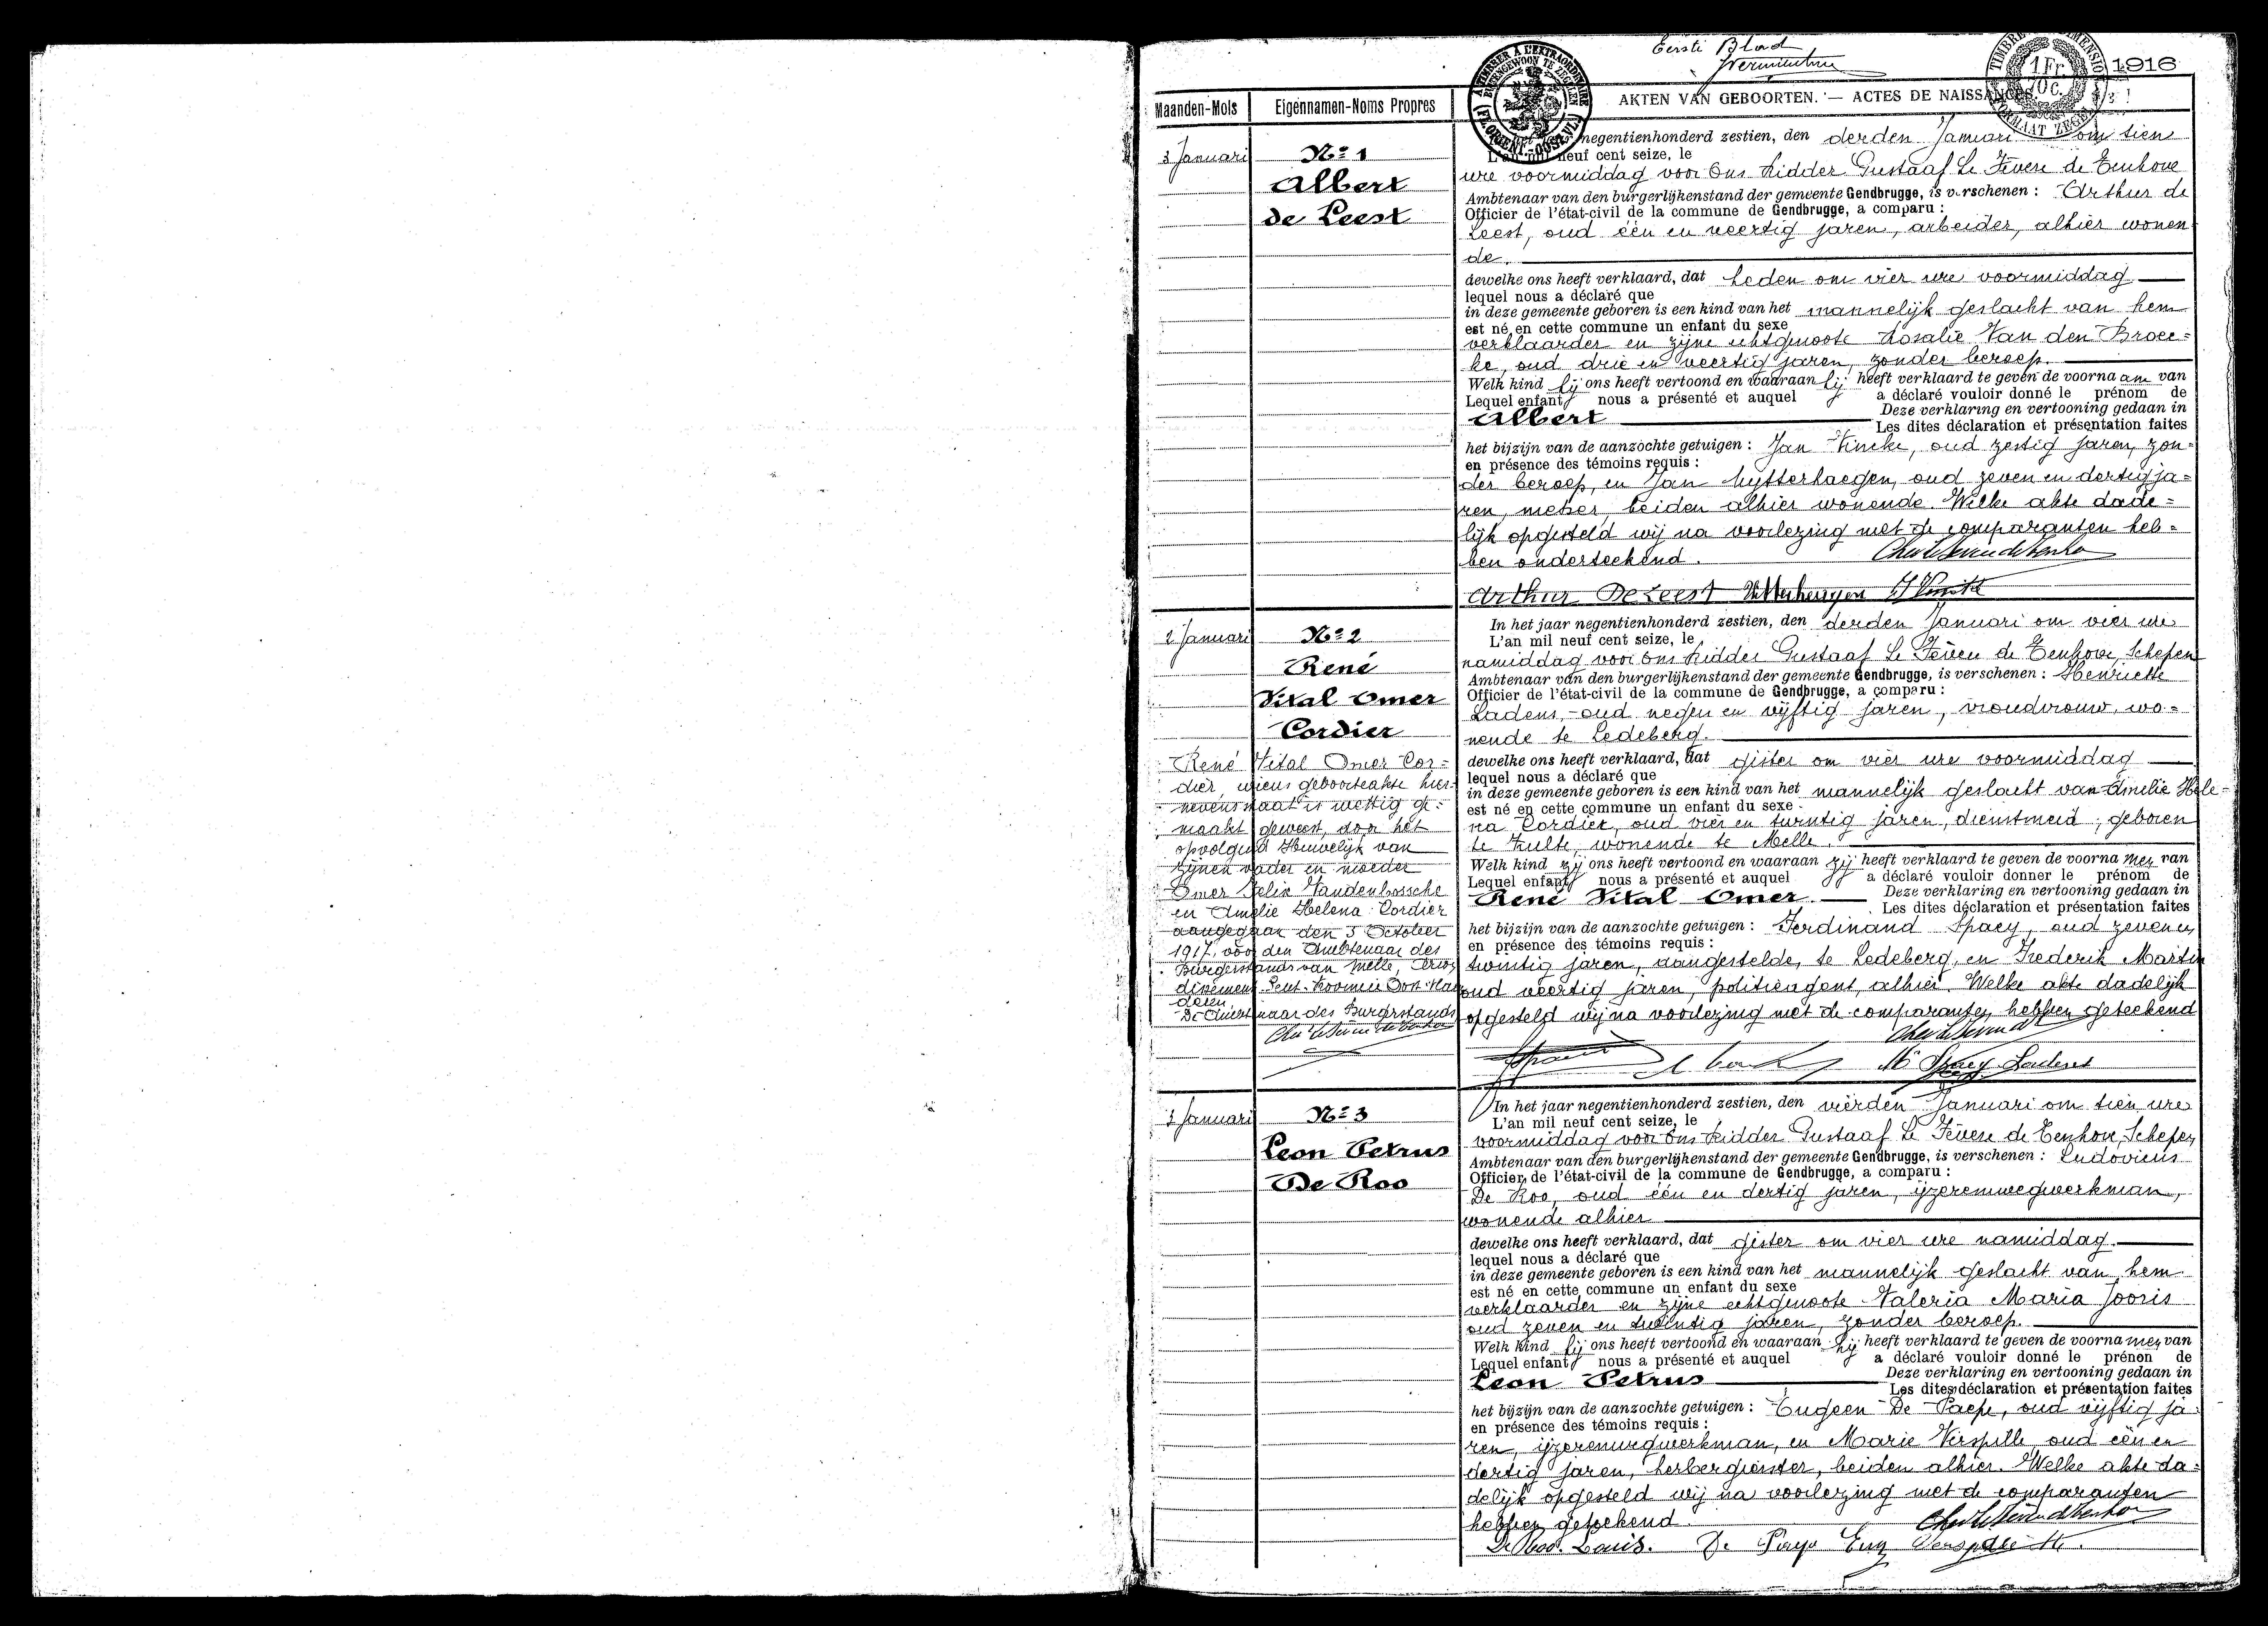 Eerste Blad
1916
A TIMBRER A L'EXTRAORDINAIRE
BUITENGEWOON TE ZEGELEN
FL. ORIENT.-OOST-VL.
1 Fr.
10 c.
Maanden-Mois
Eigennamen-Noms Propres
AKTEN VAN GEBOORTEN. — ACTES DE NAISSANCES.
3 Januari
No 1
Albert
de Leest
negentienhonderd zestien, den derden Januari om tien
L'an mil neuf cent seize, le
ure voormiddag voor Ons Ridder Gustaaf Le Fevere de Tenhove
Ambtenaar van den burgerlijkenstand der gemeente Gendbrugge, is verschenen : Arthur de
Officier de l'état-civil de la commune de Gendbrugge, a comparu :
Leest, oud één en veertig jaren, arbeider, alhier wonen
de.
dewelke ons heeft verklaard, dat heden om vier ure voormiddag
lequel nous a déclaré que
in deze gemeente geboren is een kind van het mannelijk geslacht van hem
est né en cette commune un enfant du sexe
verklaarder en zijne echtgenoote Rosalie Van den Broec=
ke, oud drie en veertig jaren, zonder beroep.
Welk kind hij ons heeft vertoond en waaraan hij heeft verklaard te geven de voornaam van
Lequel enfant nous a présenté et auquel a déclaré vouloir donné le prénom de
Albert
Deze verklaring en vertooning gedaan in
Les dites déclaration et présentation faites
het bijzijn van de aanzochte getuigen : Jan Vincke, oud zestig jaren, zon=
en présence des témoins requis :
der beroep, en Jan Uytterhaegen, oud zeven en dertig ja=
ren, metser, beiden alhier wonende. Welke akte dade=
lijk opgesteld wij na voorlezing met de comparanten heb=
ben onderteekend.
Arthur De Leest
2 Januari
No 2
René
Vital Omer
Cordier
In het jaar negentienhonderd zestien, den derden Januari om vier ure
L'an mil neuf cent seize, le
namiddag voor Ons Ridder Gustaaf Le Fevere de Tenhove, Schepen
Ambtenaar van den burgerlijkenstand der gemeente Gendbrugge, is verschenen : Henriette
Officier de l'état-civil de la commune de Gendbrugge, a comparu :
Ladens, oud negen en vijftig jaren, vroudvrouw, wo=
nende te Ledeberg.
dewelke ons heeft verklaard, dat gister om vier ure voormiddag
lequel nous a déclaré que
in deze gemeente geboren is een kind van het mannelijk geslacht van Amelie Hele=
est né en cette commune un enfant du sexe
na Cordier, oud vier en twintig jaren, dienstmeid, geboren
te Zulte, wonende te Melle.
Welk kind zij ons heeft vertoond en waaraan zij heeft verklaard te geven de voornamen van
Lequel enfant nous a présenté et auquel a déclaré vouloir donner le prénom de
René Vital Omer.
Deze verklaring en vertooning gedaan in
Les dites déclaration et présentation faites
het bijzijn van de aanzochte getuigen : Ferdinand Spaey, oud zeven en
en présence des témoins requis :
twintig jaren, aangestelde, te Ledeberg, en Frederik Martin
oud veertig jaren, politieagent, alhier. Welke akte dadelijk
opgesteld wij na voorlezing met de comparanten hebben geteekend
René Vital Omer Cor=
dier, wiens geboorteakte hier=
nevens staat is wettig ge=
maakt geweest, door het
opvolgend Huwelijk van
zijnen vader en moeder
Omer Felix Vandenbossche
en Amelie Helena Cordier
aangegaan den 3 October
1917, voor den Ambtenaar des
Burgerstands van Melle, Arron
dissement Gent. Provincie Oost-Vlaan
deren.
De Ambtenaar des Burgerstands
Spaey Ladens
3 Januari
No 3
Leon Petrus
De Roo
In het jaar negentienhonderd zestien, den vierden Januari om tien ure
L'an mil neuf cent seize, le
voormiddag voor Ons Ridder Gustaaf Le Fevere de Tenhove, Schepen
Ambtenaar van den burgerlijkenstand der gemeente Gendbrugge, is verschenen : Ludovicus
Officier de l'état-civil de la commune de Gendbrugge, a comparu :
De Roo, oud één en dertig jaren, ijzerenwegwerkman,
wonende alhier
dewelke ons heeft verklaard, dat gister om vier ure namiddag.
lequel nous a déclaré que
in deze gemeente geboren is een kind van het mannelijk geslacht van hem
est né en cette commune un enfant du sexe
verklaarder en zijne echtgenoote Valeria Maria Jooris
oud zeven en twintig jaren, zonder beroep.
Welk kind hij ons heeft vertoond en waaraan hij heeft verklaard te geven de voornamen van
Lequel enfant nous a présenté et auquel a déclaré vouloir donné le prénon de
Leon Petrus
Deze verklaring en vertooning gedaan in
Les dites déclaration et présentation faites
het bijzijn van de aanzochte getuigen : Eugeen De Paepe, oud vijftig ja=
en présence des témoins requis :
ren, ijzerenwegwerkman, en Marie Verspille, oud één en
dertig jaren, herbergierster, beiden alhier. Welke akte da=
delijk opgesteld wij na voorlezing met de comparanten
hebben geteekend.
De Roo. Louis. De Paepe Eug